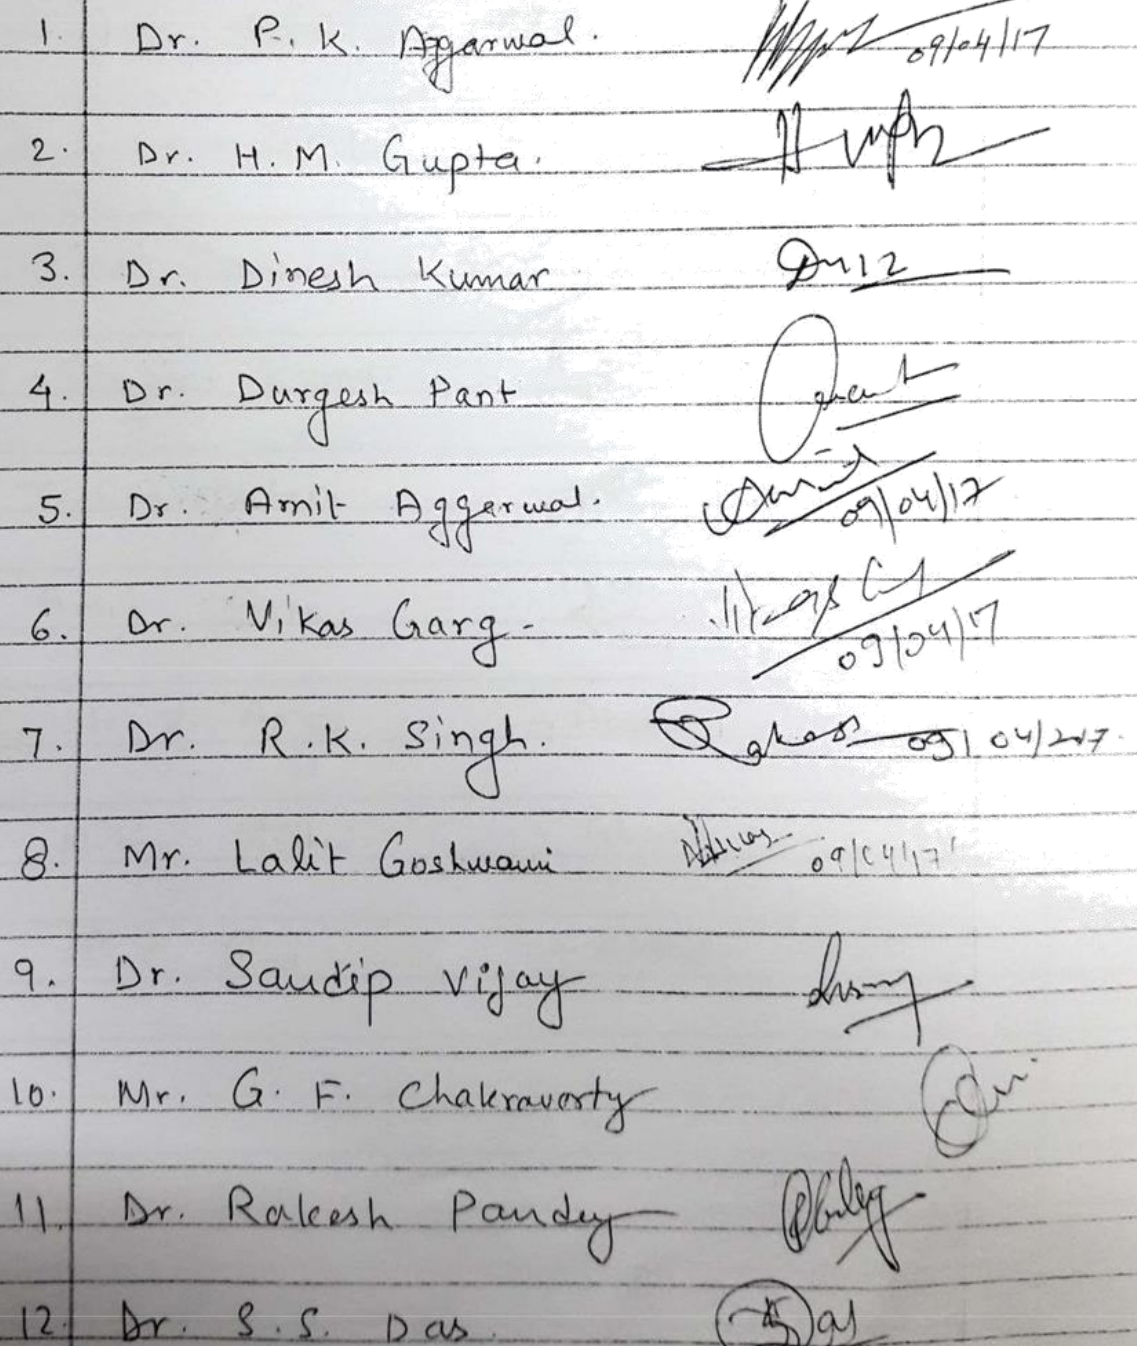 1. Dr. P. K. Aggarwal. 09/04/17
2. Dr. H. M. Gupta.
3. Dr. Dinesh Kumar
4. Dr. Durgesh Pant Pant
5. Dr. Amit Aggerwal. Amit 09/04/17
6. Dr. Vikas Garg - Vikas 09/04/17
7. Dr. R.K. Singh. Rakesh 09/04/2017.
8. Mr. Lalit Goshwami 09/04/17
9. Dr. Sandip Vijay
10. Mr. G. F. Chakravorty
11. Dr. Rakesh Pandey
12. Dr. S.S. Das Das